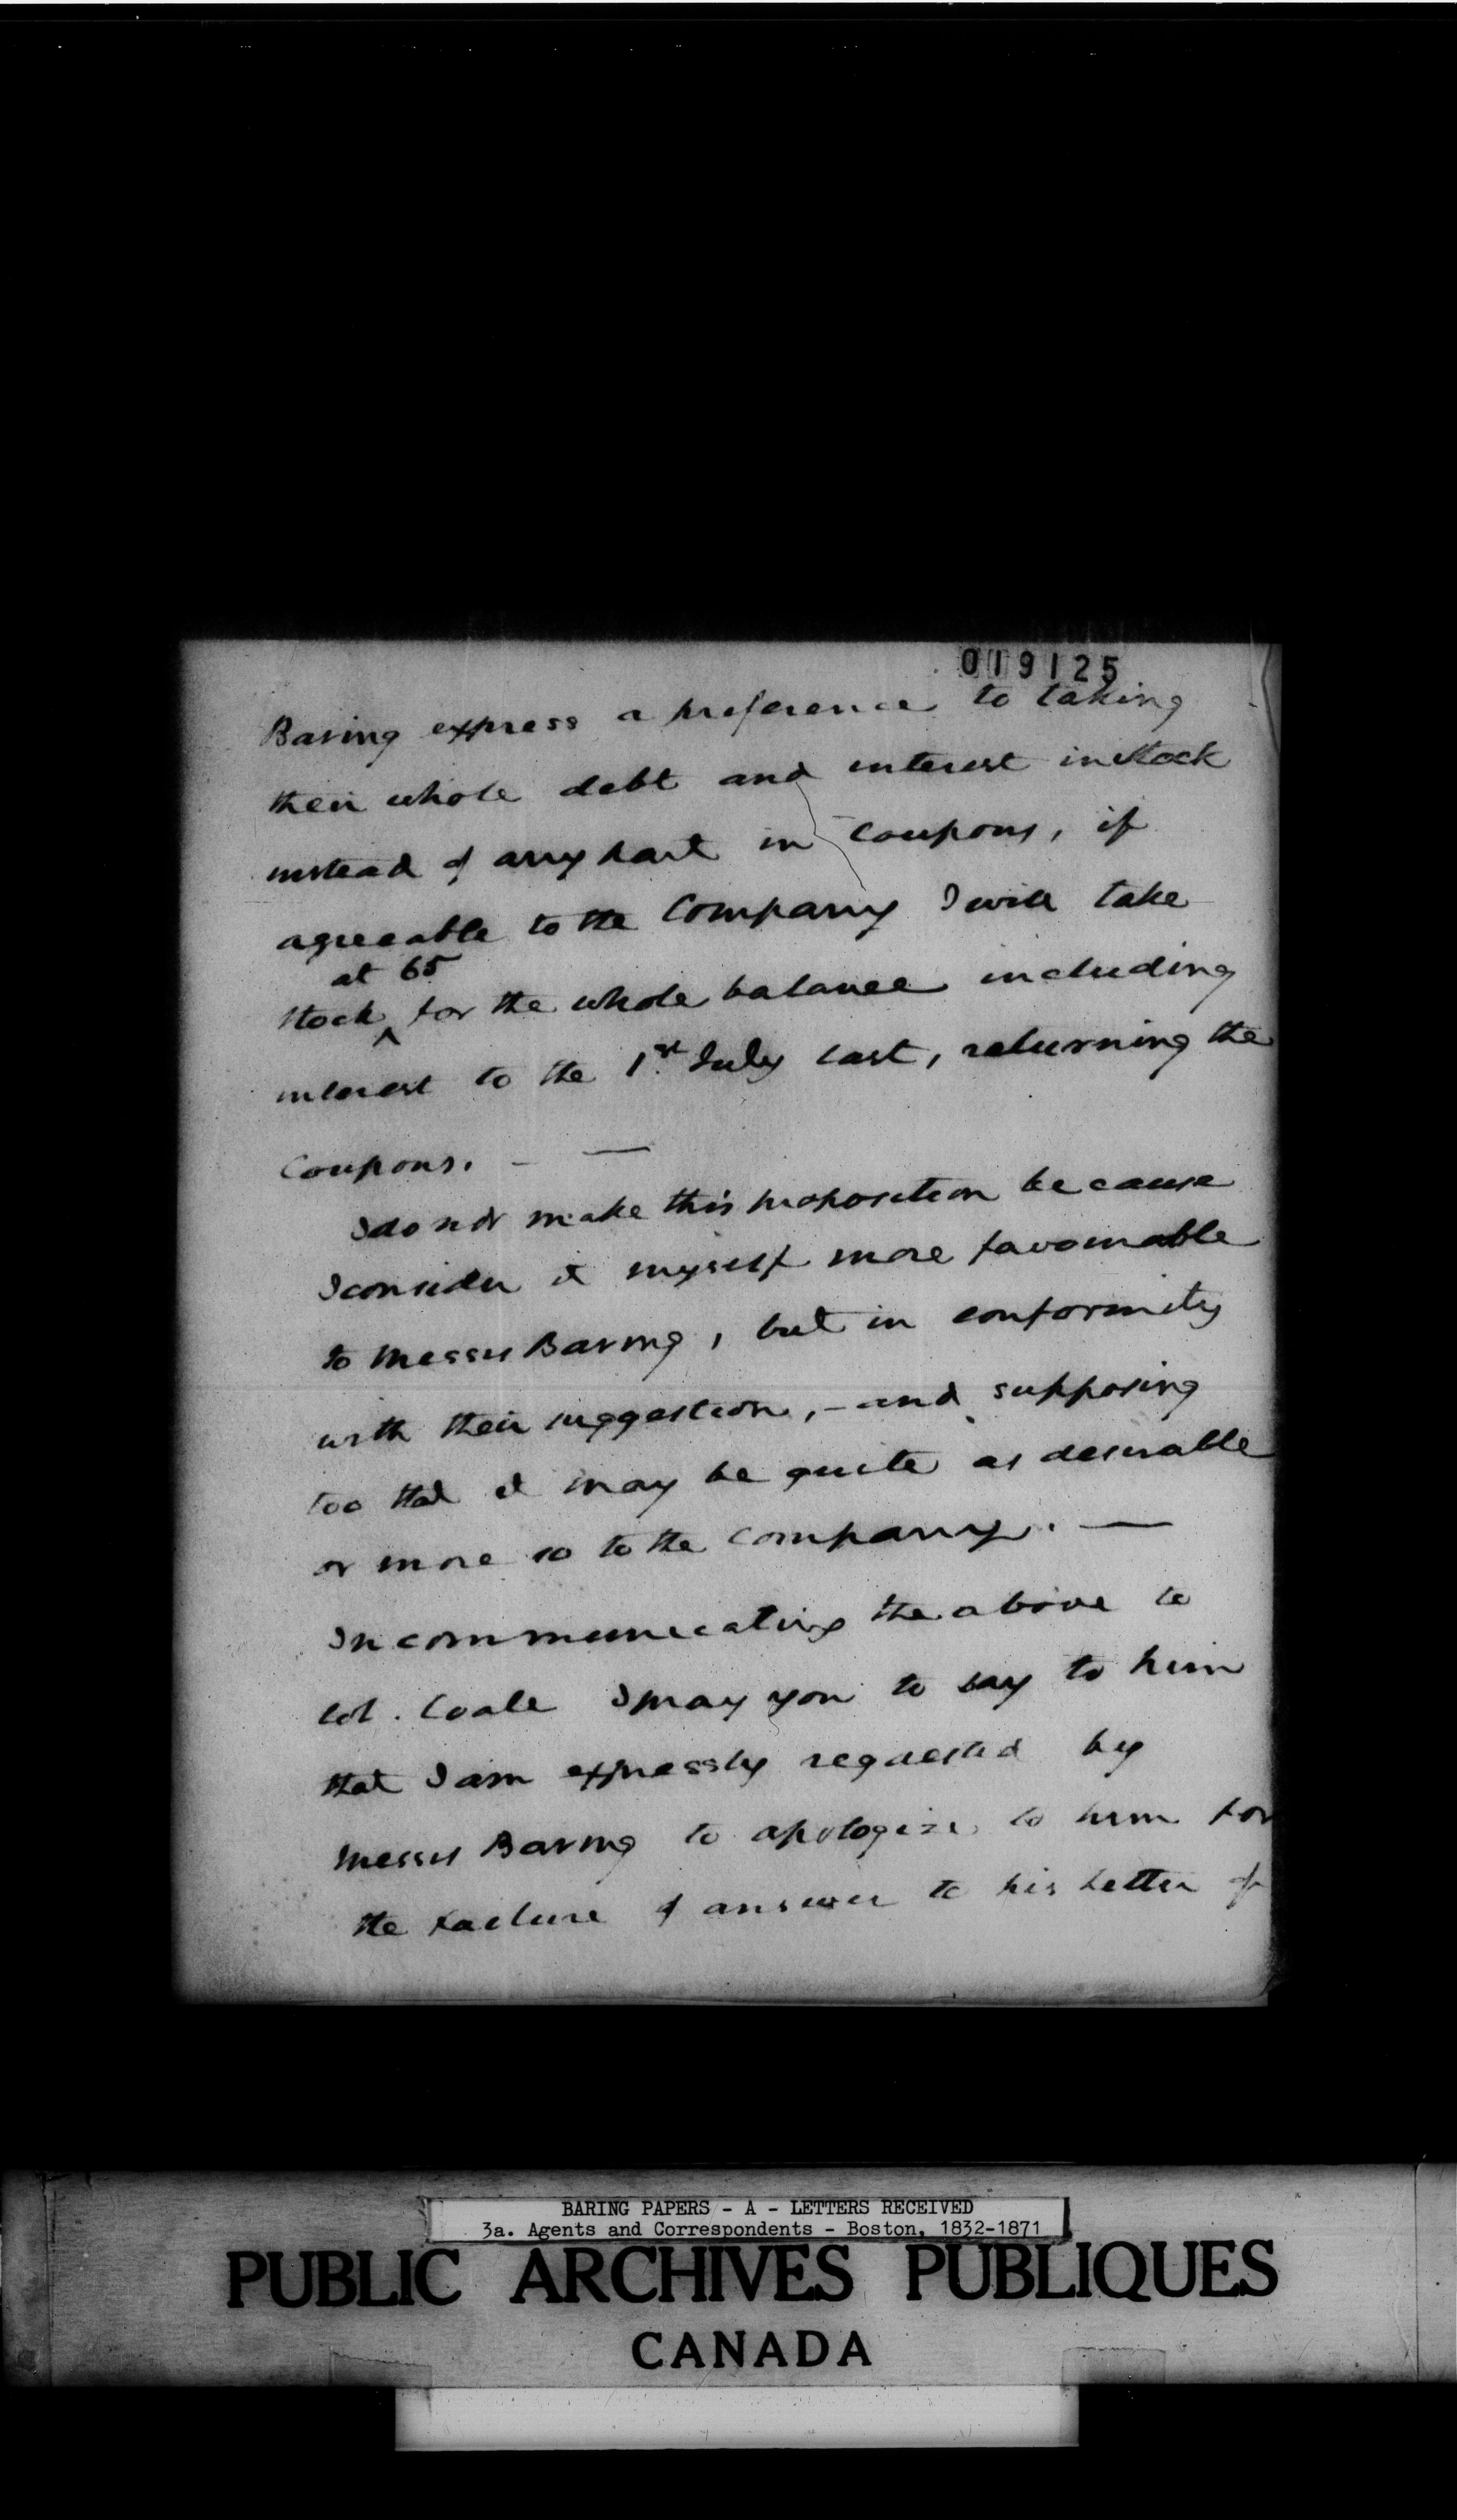 019125
Baring express a preference to taking
their whole debt and interest in stock
instead of any part in Coupons, if
agreeable to the Company I will take
at 65
stock ^ for the whole balance including
interest to the 1st July last, returning the
Coupons. - —
I do not make this proposition because
I consider it myself more favourable
to Messrs Baring, but in conformity
with their suggestion, - and supposing
too that it may be quite as desirable
or more so to the Company. —
In communicating the above to
Col. Coale I pray you to say to him
that I am expressly requested by
Messrs Baring to apologize to him for
the failure of answer to his letter of
BARING PAPERS - A - LETTERS RECEIVED
3a. Agents and Correspondents - Boston, 1832-1871
PUBLIC ARCHIVES PUBLIQUES
CANADA